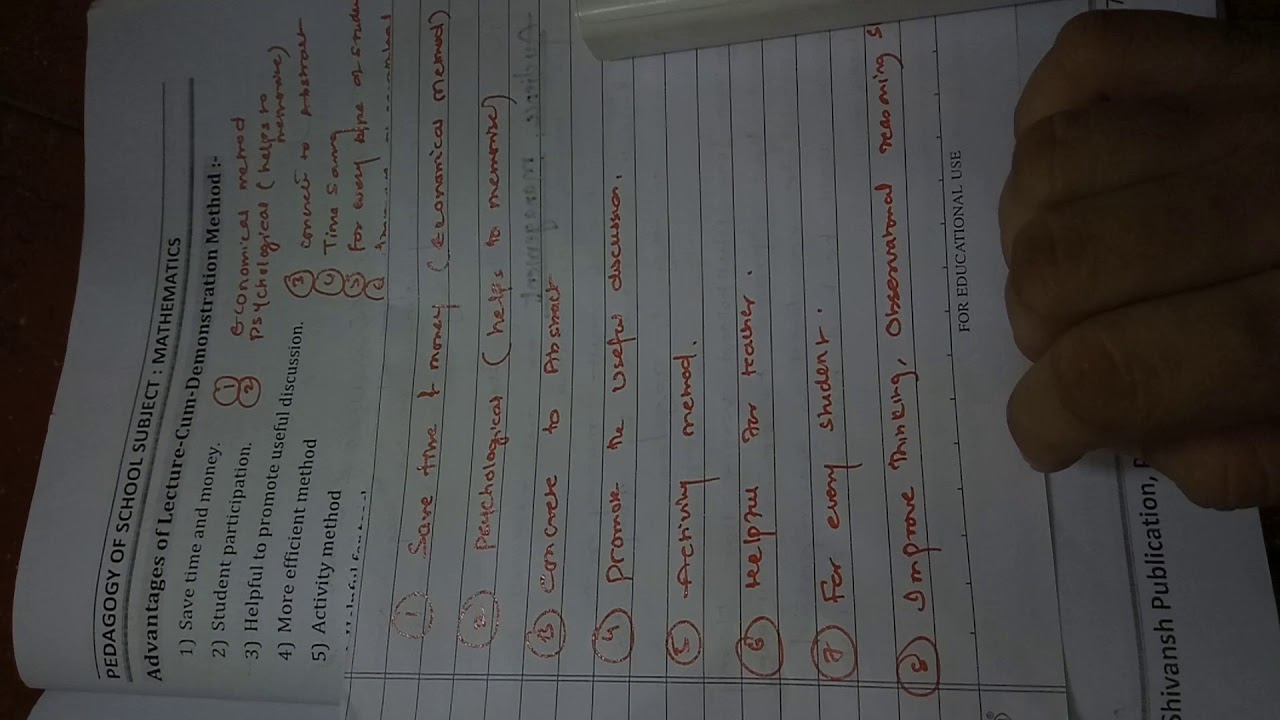 PEDAGOGY OF SCHOOL SUBJECT : MATHEMATICS
Advantages of Lecture-Cum-Demonstration Method :-
1) Save time and money.
2) Student participation.
3) Helpful to promote useful discussion.
4) More efficient method
5) Activity method
① Economical method
② psychological (helps to memorise)
③ concrete to Abstract
④ Time Saving
⑤ for every type of
① Save time & money (Economical method)
② Psychological (helps to memorise)
③ Concrete to Abstract
④ promote the Useful discussion.
⑤ Activity method.
⑥ Helpful for teacher.
⑦ For every student.
⑧ Improve Thinking, Observational reasoning
FOR EDUCATIONAL USE
Shivansh Publication,